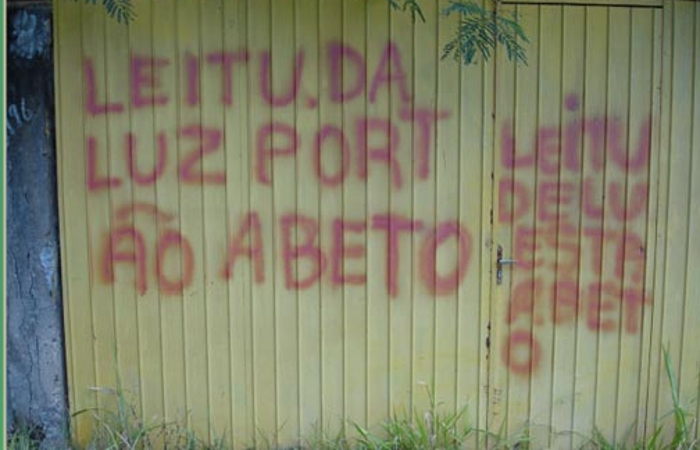 LEITU.DA
LUZ PORT
ÃO ABETO
LEITU
DELU
ESTA
ABET
O